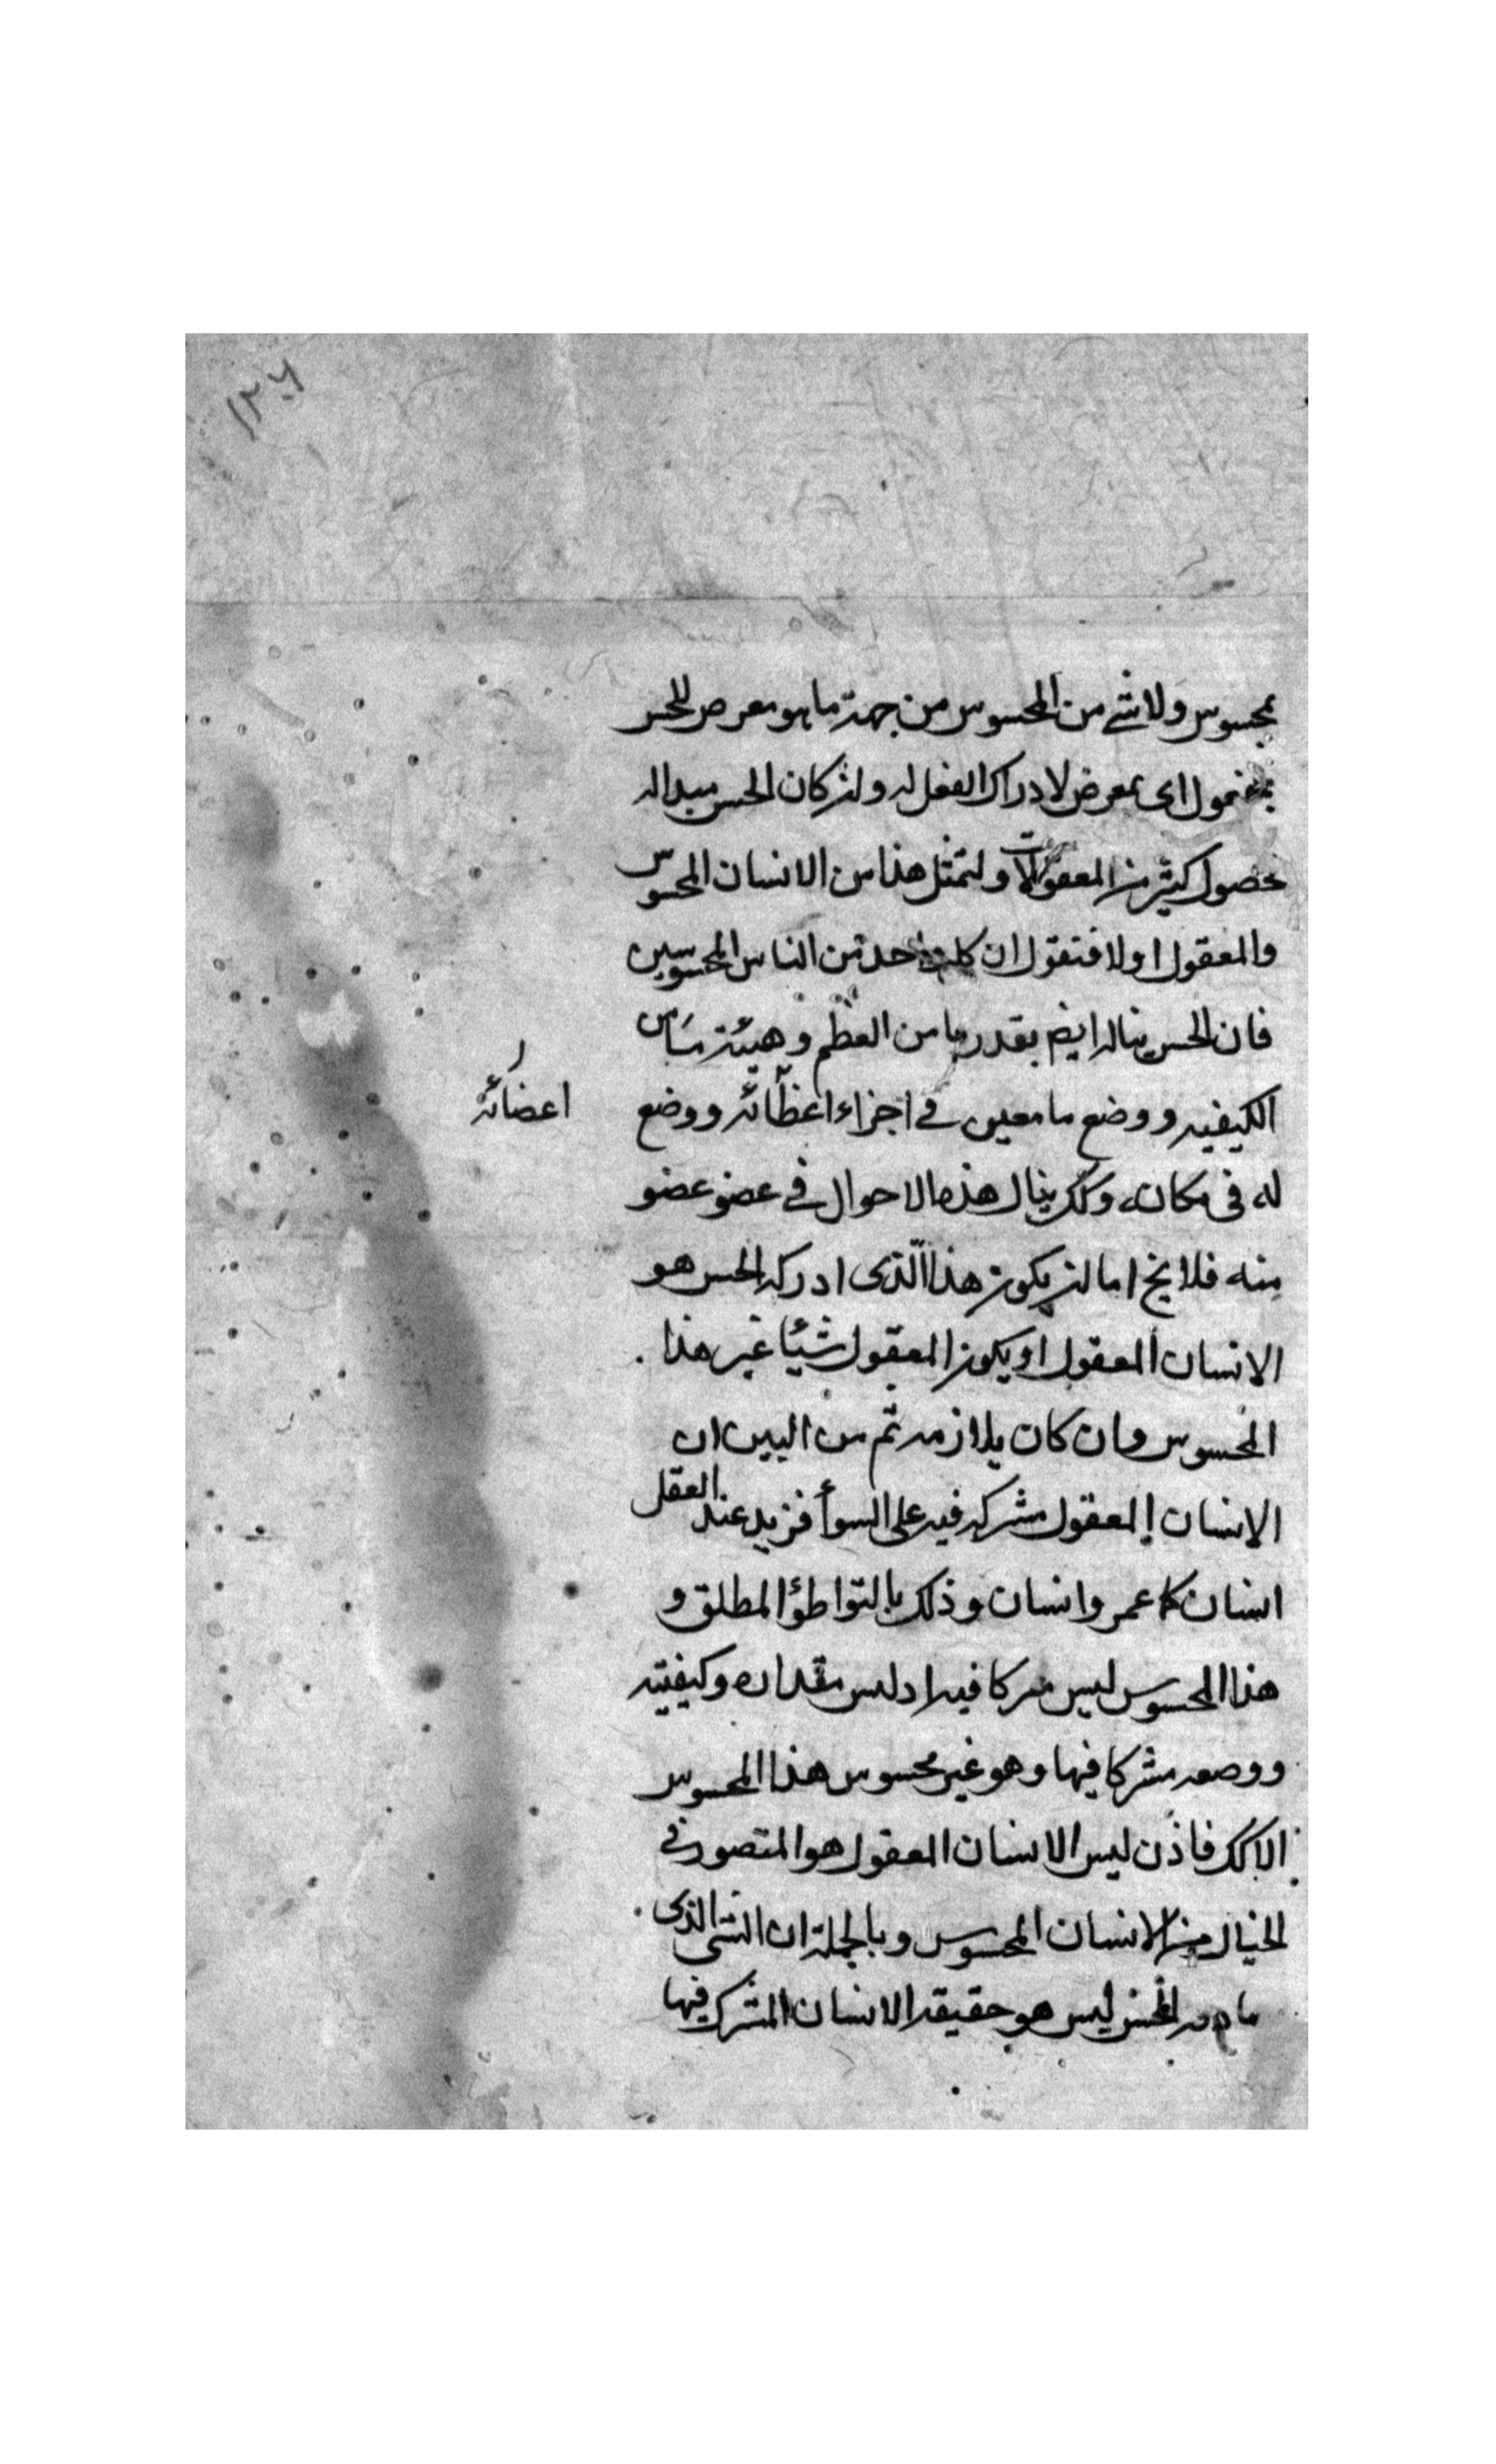 ١٢٦
بمحسوس ولا شئ من المحسوس من جهة ما هو معرض للحس
بمعقول اى بمعرض لادراك العقل له ولن كان الحس مبدا له
لحصول كثير من المعقولات ولنمثل هذا من الانسان المحسوس
والمعقول اولا فنقول ان كل واحد من الناس المحسوسين
فان الحس يناله ايضم بقدر ما من العظم وهيئة ما من
الكيفيه ووضع ما معين فى اجزاء اعظائه ووضع
اعضائه
له فى مكانه وكك ينال هذه الاحوال فى عضو عضو
منه فلا يخ اما لن يكون هذا الّذى ادركه الحس هو
الانسان المعقول او يكون المعقول شيئا غير هذا
المحسوس وان كان يلازمه ثم من البين ان
الانسان المعقول مشركه فيه على السوأ فزيد عند العقل
انسان كما عمرو انسان وذلك بالتواطؤ المطلق و
هذا المحسوس ليس مركا فيه اد ليس مقداره وكيفيته
ووصعه مشركا فيها وهو غير محسوس هذا المحسوس
الا كك فاذن ليس الانسان المعقول هو المتصور فى
الخيال من الانسان المحسوس وبالجملة ان الشى الذى
الحس ليس هو حقيقه الانسان المشرك فيها